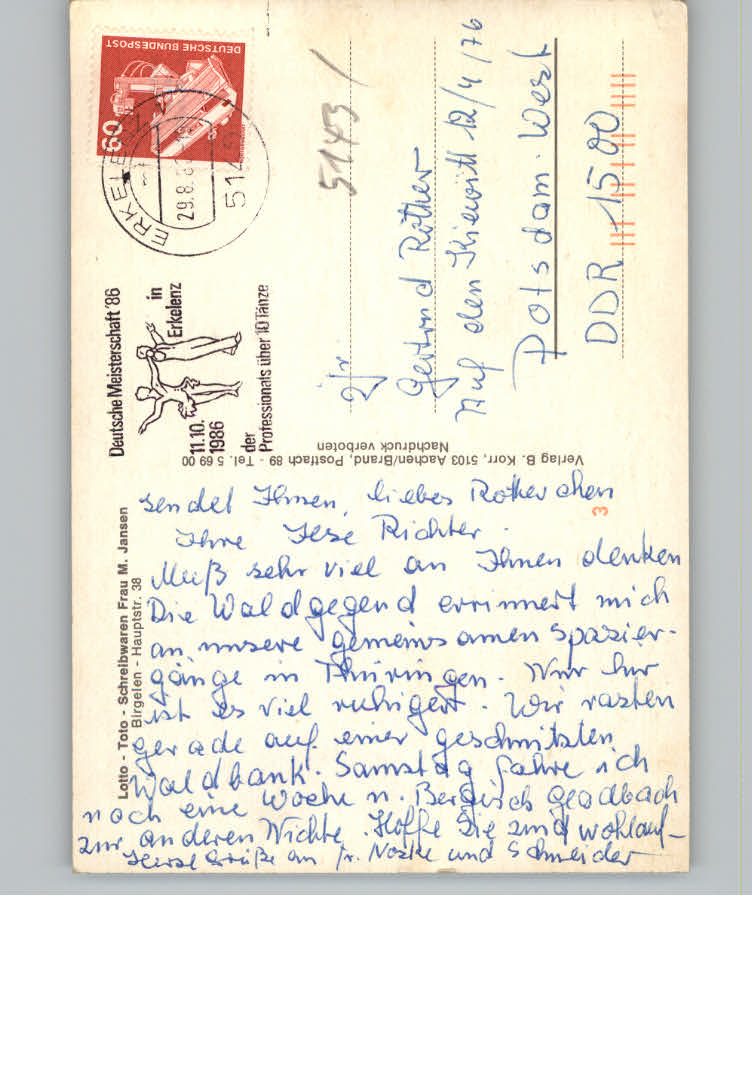 DEUTSCHE BUNDESPOST
60
ERKELENZ
29.8.86
514
Deutsche Meisterschaft '86
in
Erkelenz
11.10.
1986
der
Professionals über 10 Tänze
5143 /
Gertrud Röther
Auf den Kiewitt 12/4/76
Potsdam-West
DDR 1500
Verlag B. Korr, 5103 Aachen/Brand, Postfach 89 - Tel. 5 69 00
Nachdruck verboten
Lotto - Toto - Schreibwaren Frau M. Jansen
Birgelen - Hauptstr. 38
3
sendet Ihnen, liebes Rötherchen
Ihre Ilse Richter.
Muß sehr viel an Ihnen denken
Die Waldgegend errinnert mich
an unsere gemeinsamen Spazier-
gänge in Thüringen. Nur hier
ist es viel ruhiger. Wir rasten
gerade auf einer geschnitzten
Waldbank. Samstag fahre ich
noch eine Woche n. Bergisch Gladbach
zur anderen Nichte. Hoffe Sie sind wohlauf-
Herzl Grüße an Fr. Noske und Schneider